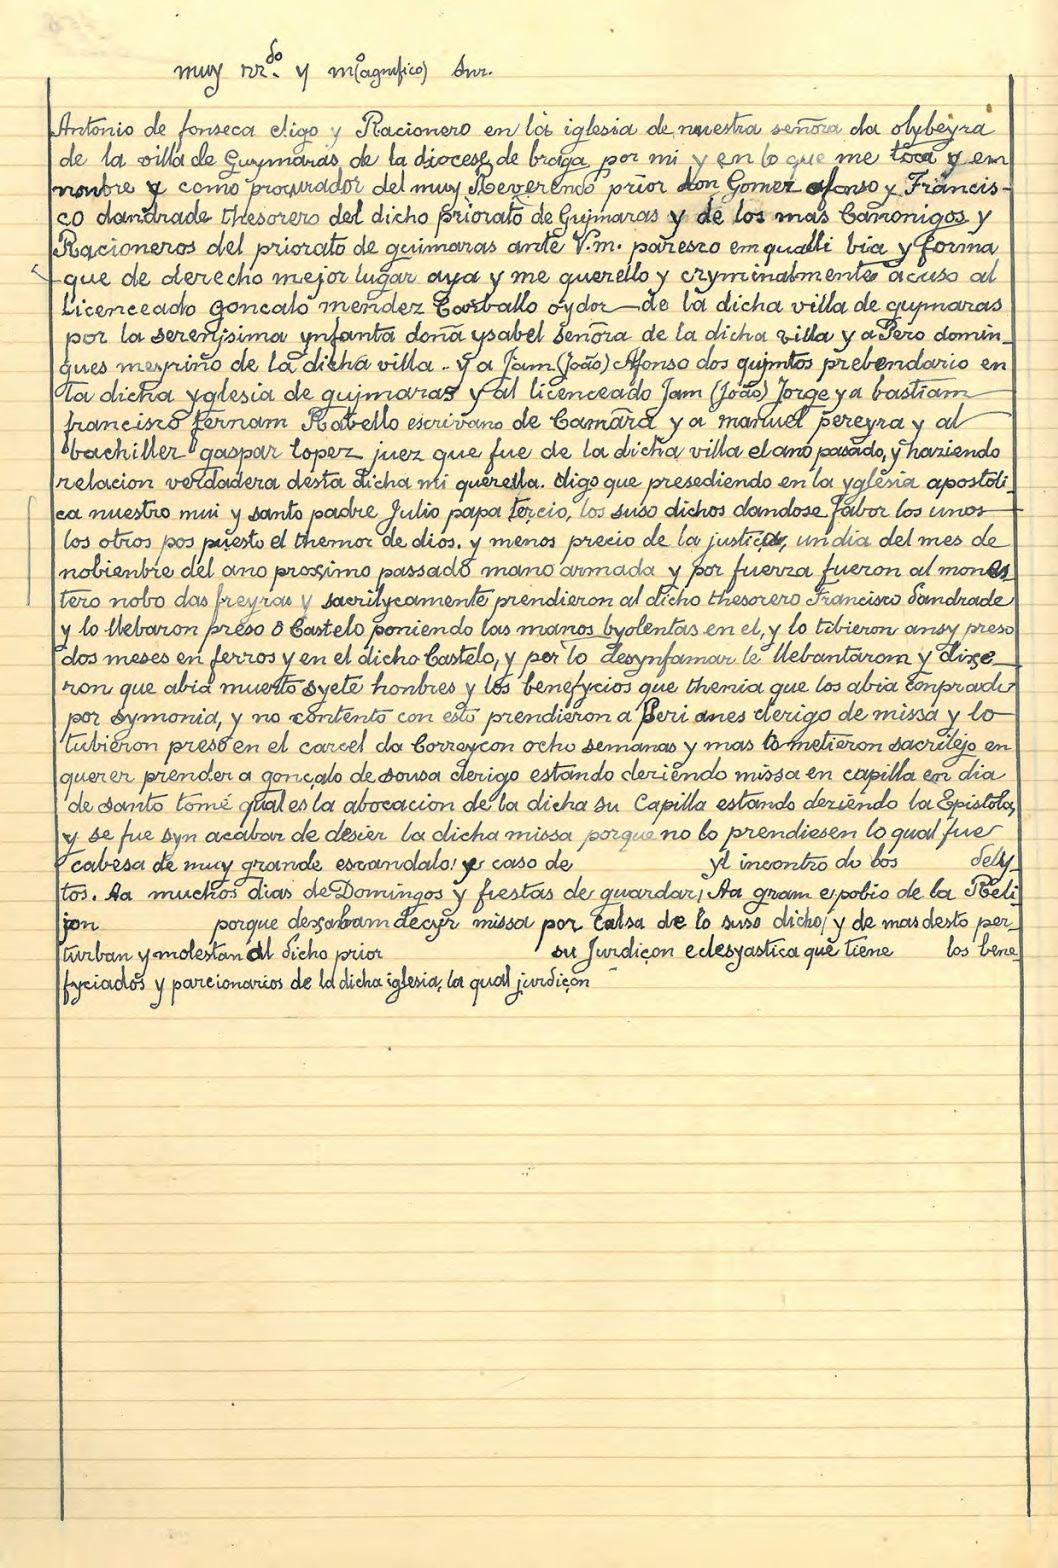 muy rrdo. y mo(agnifico) Snr.
Antonio de fonseca cligo y Racionero en la iglesia de nuestra señora da olybeyra
de la villa de Guymaras de la diocese de braga por mi y en lo que me toca y em
nonbre y como procurador del muy Reverendo prior don Gomez afonso y Francis-
co dandrade thesorero del dicho priorato de Guimaras y de los mas Canonigos y
Racioneros del priorato de guimaras ante V.m. paresco em qualli bia y forma
que de derecho mejor lugar aya y me querello y cryminalmente acuso al
Licenceado Goncalo mendez Carballo oydor de la dicha villa de guymaras
por la serenisima ynfanta doña ysabel señora de la dicha villa y a Pero domin_
gues meyriño de la dicha villa .. y a Jam (João) Afonso dos quimtos prebendario en
la dicha yglesia de guimaras y al licenceado Jam (João) Jorge y a bastiam
francisco fernam Rabello escrivano de Camara y a manuel pereyra y al
bachiller gaspar lopez juez que fue de la dicha villa el ano pasado, y haziendo
relacion verdadera desta dicha mi querella. digo que presediendo en la yglesia apostoli-
ca nuestro mui y santo padre Julio papa tercio, los suso dichos dandose fabor los unos
los otros pos puesto el themor de dios. y menos precio de la justicia, un dia del mes de
nobienbre del ano proximo passado mano armada y por fuerza fueron al mones
tero nobo das freyras y sacrilycamente prendieron al dicho thesorero Francisco dandrade
y lo llebaron preso ò Castelo poniendo las manos byolentas en el, y lo tibieron ansy preso
dos meses en ferros y en el dicho Castelo, y por lo desynfamar le llebantarom y dixe_
ron que abia muerto syete honbres y los benefycios que thenia que los abia conprado
por symonia, y no contento con esto prendieron a Peri anes clerigo de missa y lo
tubieron preso en el carcel da Correycon ocho semanas y mas lo metieron sacrilejo en
querer prender a gonçalo de sousa clerigo estando deziendo missa en capilla en dia
de santo tomé qual es la abocacion de la dicha su Capilla estando deziendo la Epistola,
y se fue syn acabar de desier la dicha missa porque no lo prendiesen lo qual fue
cabesa de muy grande escandalo: y caso de yl incontro do los dely
tos. Aa muchos dias de Domingos y fiestas de guardar, Aa gram epobio de la Reli
jon porque dexabam decyr missa por calsa de lo suso dicho/ y de mas desto per_
turban y molestan al dicho prior su Jurdiçon eclesyastica que tiene los bene_
fyciados y parcionarios de la dicha iglesia, la qual jurdiçon